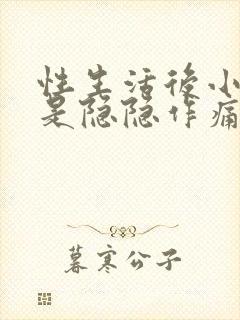 性生活後小
是隐隐作痛
暮寒公子